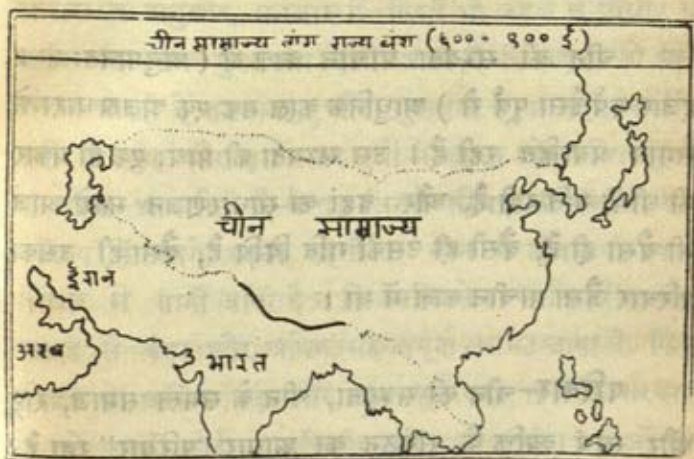 चीन साम्राज्य तांग राज्य वंश (६००-९०० ई)
चीन साम्राज्य
ईरान
अरब
भारत